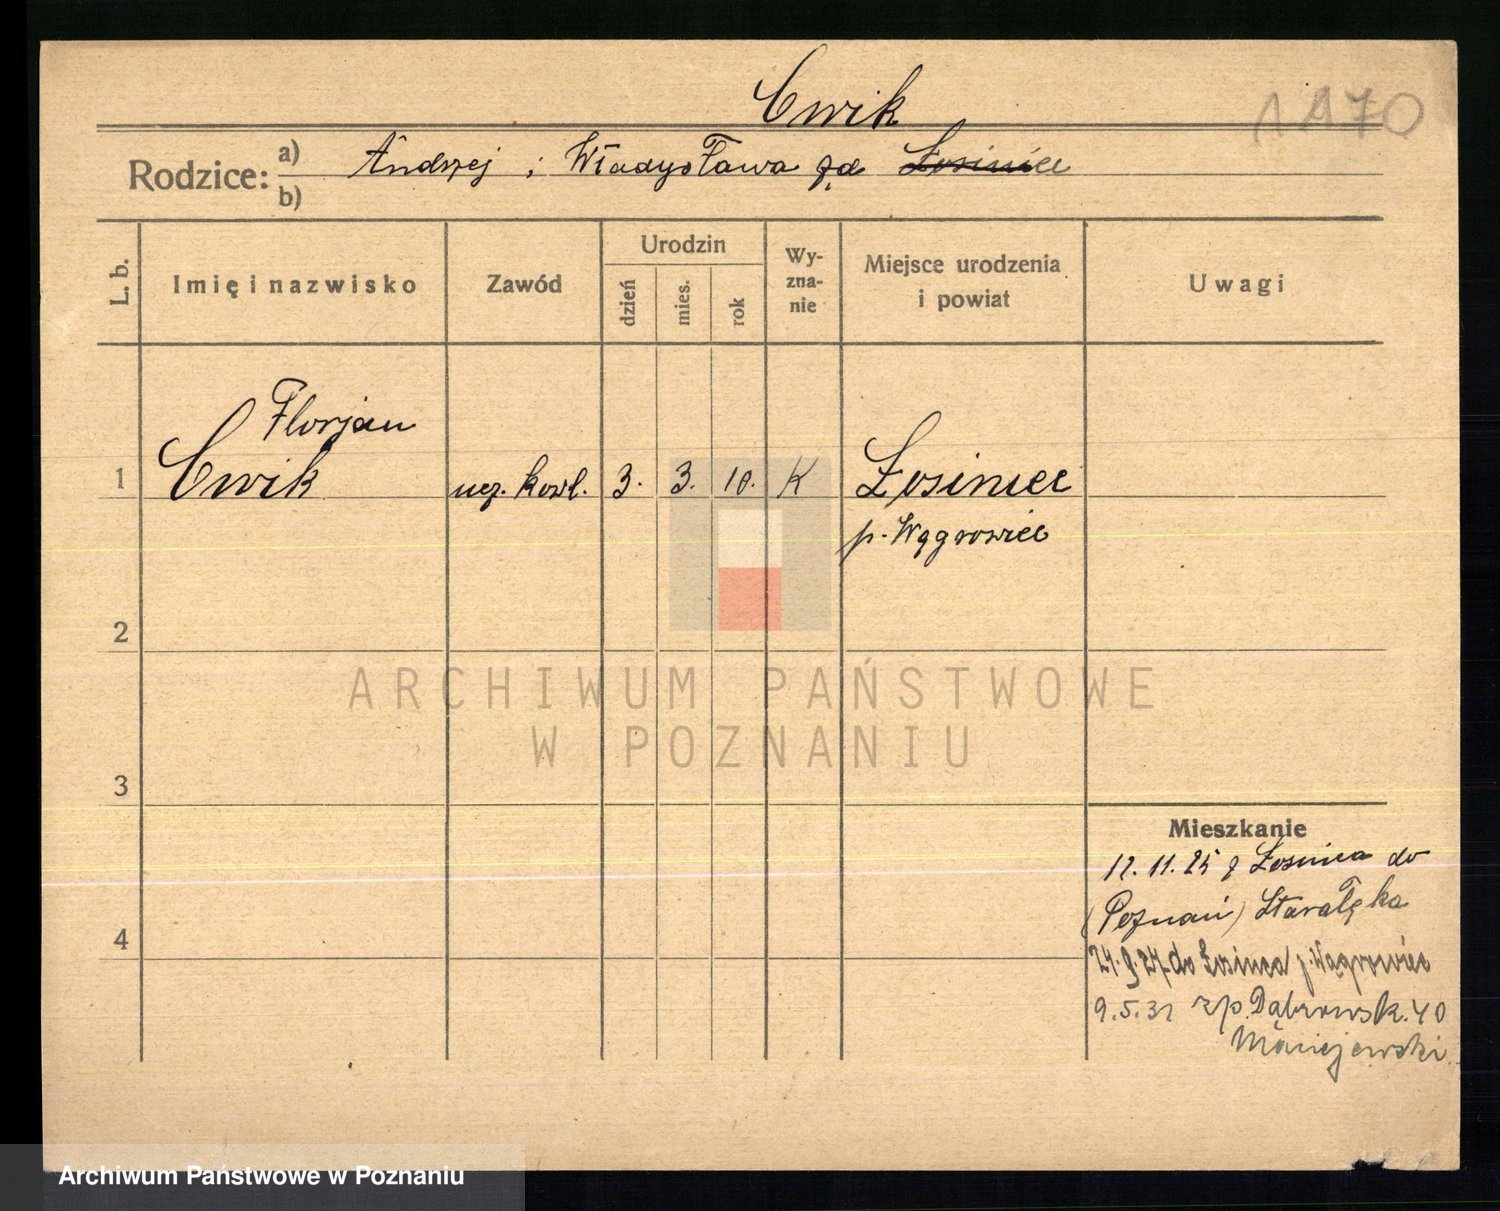 Cwik
1470
Rodzice: a) Andrzej i Władysława zd Łosiniec
b)
L. b. Imię i nazwisko Zawód Urodzin dzień mies. rok Wy-zna-nie Miejsce urodzenia i powiat Uwagi
Florjan
1 Cwik ucz. kowl. 3. 3. 10. K Łosiniec
p. Wągrowiec
2
ARCHIWUM PAŃSTWOWE
W POZNANIU
3
Mieszkanie
12. 11. 25 z Łosińca do
(Poznań) Starałęka
4
24.9.27 do Łosińca p. Wągrowiec
9.5.31 Dąbrowsk. 40
Maciejewski
Archiwum Państwowe w Poznaniu